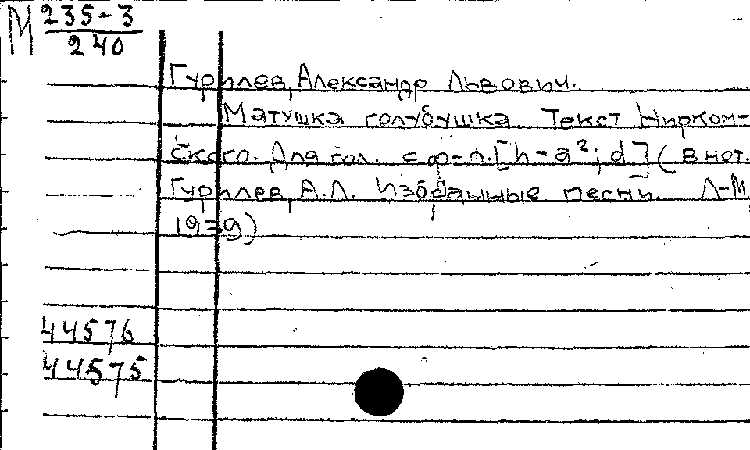 М 235-3
240
Гурилев, Александр Львович.
Матушка голубушка. Текст Ниркомс-
ского. Для гол. с ф-п. [h - a²; d] (в нот.
Гурилев, А.Л. Избранные песни Л-М,
1939)
44576
44575